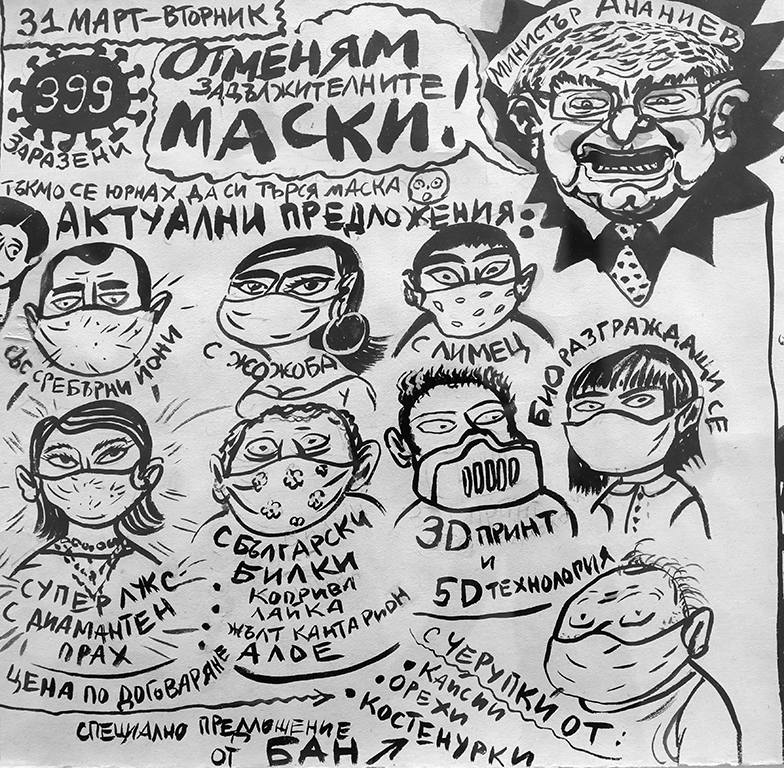 31 МАРТ-ВТОРНИК
399
ЗАРАЗЕНИ
ОТМЕНЯМ
ЗАДЪЛЖИТЕЛНИТЕ
МАСКИ!
МИНИСТЪР АНАНИЕВ
ТЪКМО СЕ ЮРНАХ ДА СИ ТЪРСЯ МАСКА
АКТУАЛНИ ПРЕДЛОЖЕНИЯ:
СЪС СРЕБЪРНИ ЙОНИ
С ЖОЖОБА
С ЛИМЕЦ
БИОРАЗГРАЖДАЩИ СЕ
СУПЕР ЛУКС
С ДИАМАНТЕН
ПРАХ
ЦЕНА ПО ДОГОВАРЯНЕ
С БЪЛГАРСКИ
БИЛКИ
• КОПРИВА
• ЛАЙКА
• ЖЪЛТ КАНТАРИОН
• АЛОЕ
3D ПРИНТ
И
5D ТЕХНОЛОГИЯ
С ЧЕРУПКИ ОТ:
• КАЙСИИ
• ОРЕХИ
• КОСТЕНУРКИ
СПЕЦИАЛНО ПРЕДЛОЖЕНИЕ
ОТ БАН